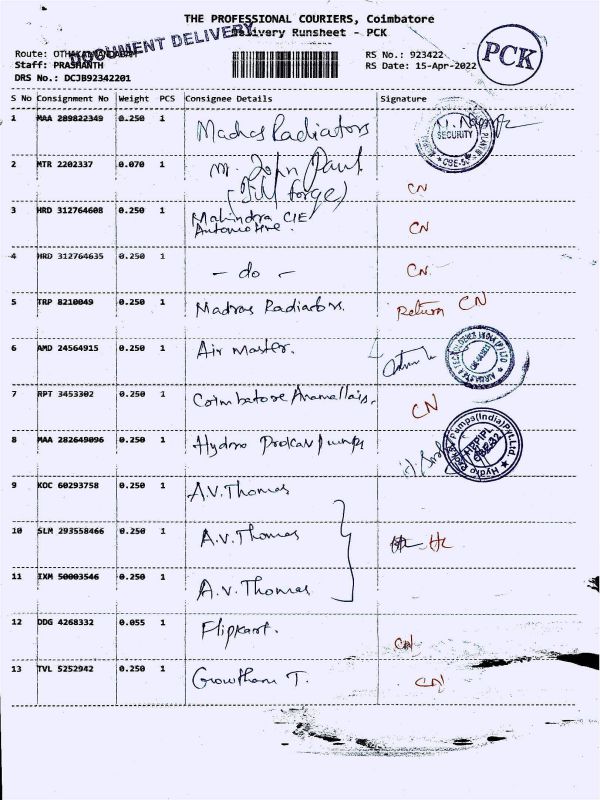 THE PROFESSIONAL COURIERS, Coimbatore
Delivery Runsheet - PCK
DOCUMENT DELIVERY
PCK
Route: OTHAKALMANDABAM
RS No.: 923422
Staff: PRASHANTH
RS Date: 15-Apr-2022
DRS No.: DCJB92342201
S No Consignment No Weight PCS Consignee Details Signature
1 MAA 289822349 0.250 1 Madras Radiators
SECURITY
CBE-50
2 MTR 2202337 0.070 1 Mr. John Paul
(Bill forge) CN
3 HRD 312764608 0.250 1 Mahindra CIE
Automotive. CN
4 HRD 312764635 0.250 1 - do - CN
5 TRP 8210049 0.250 1 Madras Radiators. Return CN
6 AMD 24564915 0.250 1 Air Master.
7 RPT 3453302 0.250 1 Coimbatore Anamallais. CN
8 MAA 282649096 0.250 1 Hydro Prokav pumps
Hydro Prokav Pumps(India)Pvt.Ltd
HPPIPL
CBE-32
9 KOC 60293758 0.250 1 A.V. Thomas
10 SLM 293558466 0.250 1 A.V. Thomas
11 IXM 50003546 0.250 1 A.V. Thomas
12 DDG 4268332 0.055 1 Flipkart. CN
13 TVL 5252942 0.250 1 Gowtham T. CN